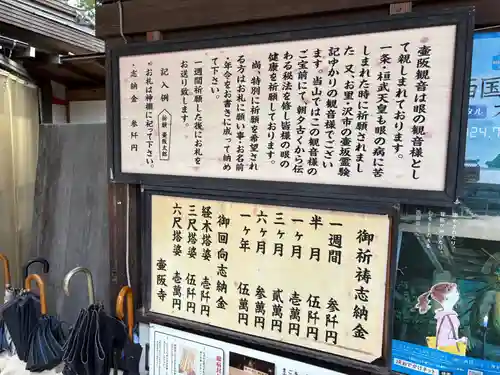 壷阪観音は眼の観音様とし
て親しまれております。
一条・桓武天皇も眼の病に苦
しまれた時に祈願されまし
た。又、お里・沢市の壷坂霊験
記ゆかりの観音様でござい
ます。当山ではこの観音様の
ご宝前にて、朝夕古くから伝
わる秘法を修し皆様の眼の
健康を祈願しております。
尚、特別に祈願を希望され
る方は護摩木に願い事・お名前
・年令をお書きに成って納め
て下さい。
一週間祈願した後にお札を
お送り致します。
記入例
お札は神棚に祀って下さい。
志納金 参阡円
御祈祷志納金
一週間 参阡円
半月 伍阡円
一ヶ月 壱万円
三ヶ月 貮万円
六ヶ月 参万円
一ヶ年 伍万円
御回向志納金
経木塔婆 壱阡円
三尺塔婆 伍阡円
六尺塔婆 壱萬円
壷阪寺